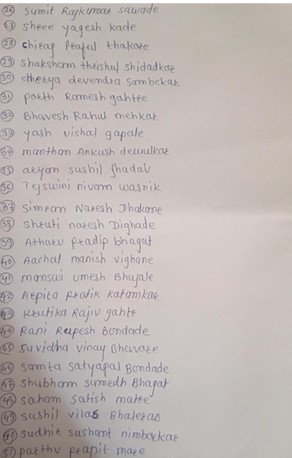 26 Sumit Rajkumar sawade
27 shree yagesh kade
28 chirag Praful thakare
29 shaksham thrishul shidadkar
30 chesya devendra Sambekar
31 parth Ramesh gahtre
32 Bhavesh Rahul mehkar
33 yash vishal gapale
34 manthan Ankush dewulkar
35 aryan sushil Jhadav
36 Tejswini nivam wasnik
37 Simran Naresh Dhakane
38 Shruti naresh Dighade
39 Atharv pradip bhagat
40 Aachal manish vighane
41 manswi umesh Bhujale
42 Arpita pratik Katamkar
43 Krutika Rajiv gahte
44 Rani Rupesh Bondade
45 Suvidha vinay Bhavare
46 Samta satyapal Bondade
47 Shubham sumedh Bhagat
48 saham satish matre
49 sushil vilas Bhalerao
50 sudhir sushant nimborkar
51 parthv more